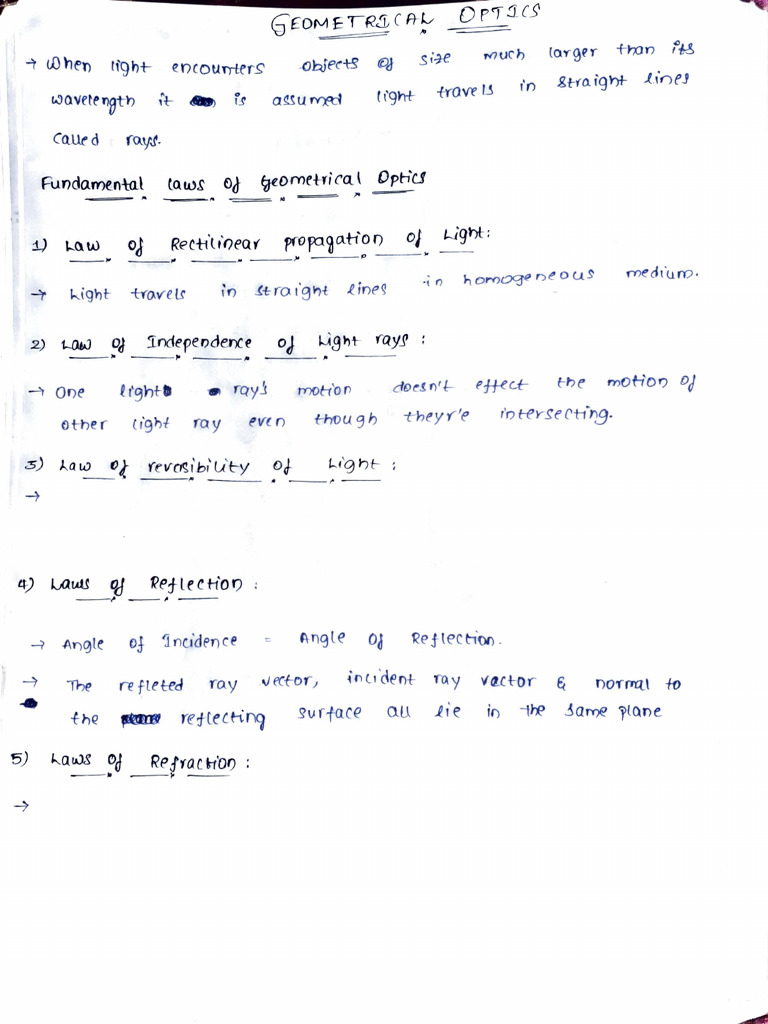 GEOMETRICAL OPTICS
→ When light encounters objects of size much larger than its
wavelength it is assumed light travels in straight lines
called rays.
Fundamental laws of Geometrical Optics
1) Law of Rectilinear propagation of Light:
→ Light travels in straight lines in homogeneous medium.
2) Law of Independence of Light rays :
→ One light ray's motion doesn't effect the motion of
other light ray even though theyr'e intersecting.
3) Law of reversibility of Light :
→
4) Laws of Reflection :
→ Angle of Incidence = Angle of Reflection.
→ The refleted ray vector, incident ray vector & normal to
the reflecting surface all lie in the same plane
5) Laws of Refraction :
→